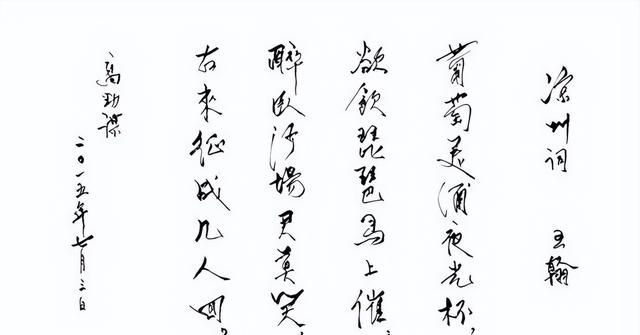 凉州词 王翰
葡萄美酒夜光杯,
欲飲琵琶马上催.
醉臥沙場君莫笑,
古來征战几人回?
高
二〇一五年七月三日